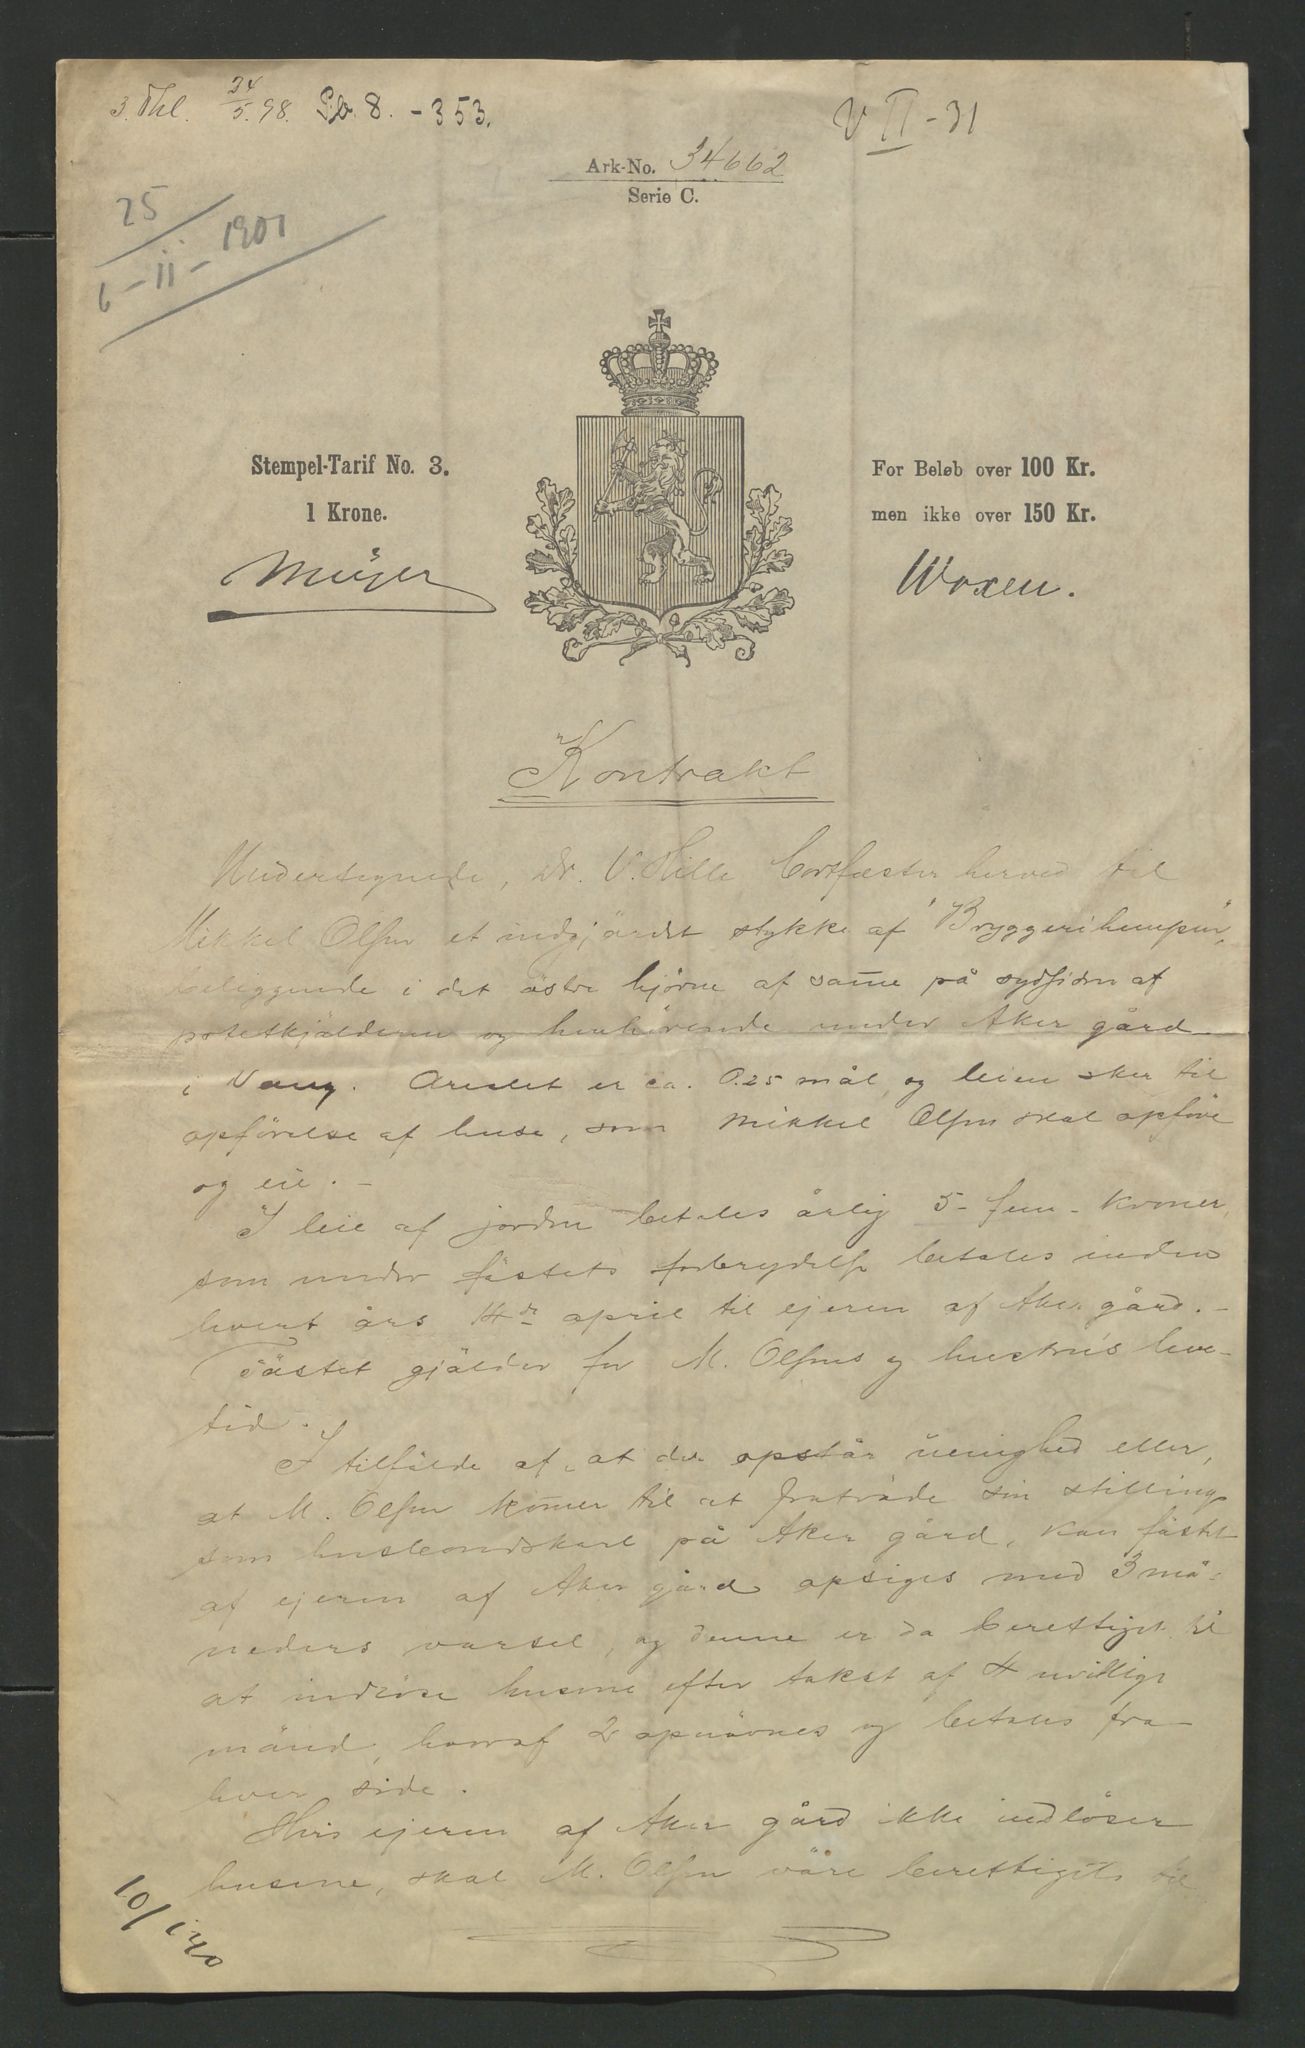 3. Thl. 24/5.98. Pb. 8. - 353.
V II - 31
Ark-No. 34662
Serie C.
25
6 - II - 1901
Stempel-Tarif No. 3.
1 Krone.
For Beløb over 100 Kr.
men ikke over 150 Kr.
Meyer
Woxen.
Kontrakt
Undertegnede, Dr. V. Hille bortfæster herved til
Mikkel Olsen et indgjärdet stykke af "Bryggerihempen",
beliggende i det östre hjörne af same på sydsiden af
potetkjälderen og henhörende under Aker gård
i Vang. Arealet er ca. 0.25 mål, og leien sker til
opförelse af huse, som Mikkel Olsen skal opföre
og eie. -
I leie af jorden betales årlig 5 - fem - kroner,
som under fästets forbrydelse betales inden
hvert års 14de april til ejeren af Aker gård. -
Fästet gjälder for M. Olsens og hustrus leve-
tid.
I tilfälde af, at der opstår uenighed eller,
at M. Olsen komer til at fraträde sin stilling
som husbondskarl på Aker gård, kan fästet
af ejeren af Aker gård opsiges med 3 må-
neders varsel, og denne er da berettiget til
at indlöse husene efter takst af 4 uvillige
mänd, hvoraf 2 opnävnes og betales fra
hver side.
Hvis ejeren af Aker gård ikke indlöser
husene, skal M. Olsen väre berettiget til
10/140